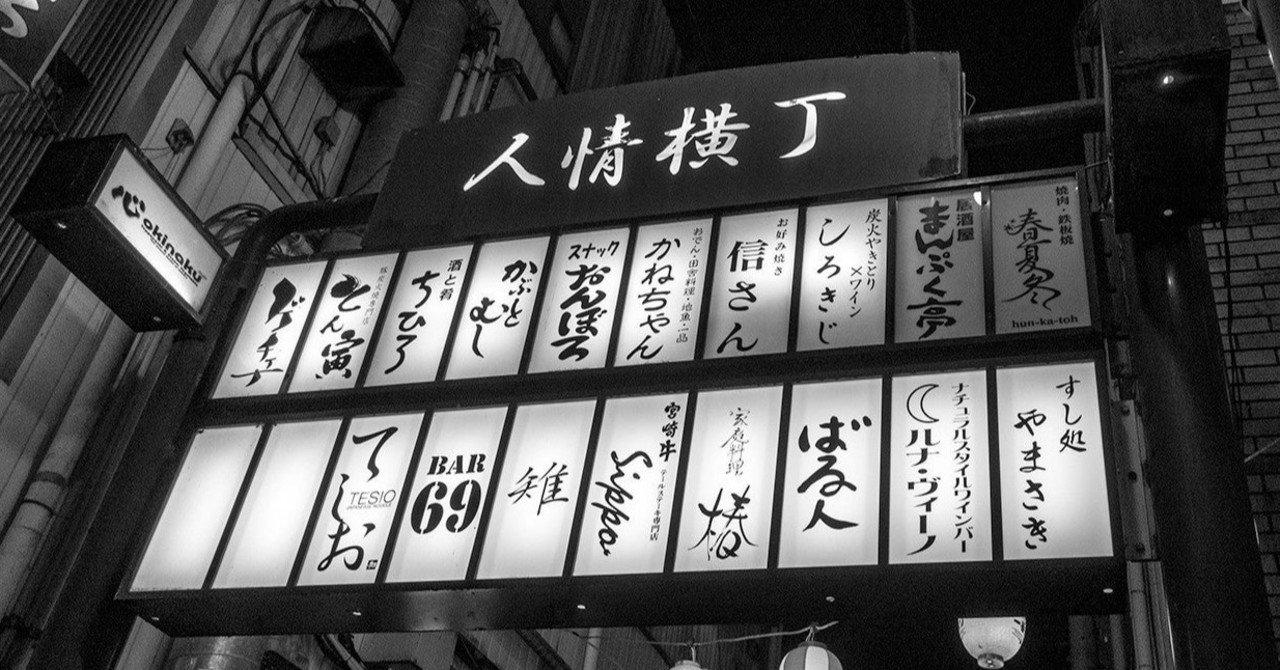 人情横丁
心 okinoku
とん寅
酒と肴
ちひろ
かぶと
むし
スナック
おんぼろ
おでん・田舎料理・地魚・一品
かねちゃん
お好み焼き
信さん
炭火やきとり
×ワイン
しろきじ
居酒屋
まんぷく亭
焼肉・鉄板焼
春夏冬
hun-ka-toh
てしお
TESIO
BAR
69
雉
宮崎牛
テールステーキ専門店
家庭料理
椿
ばる人
ナチュラルスタイルワインバー
ルナ・ヴィーノ
すし処
やまさき